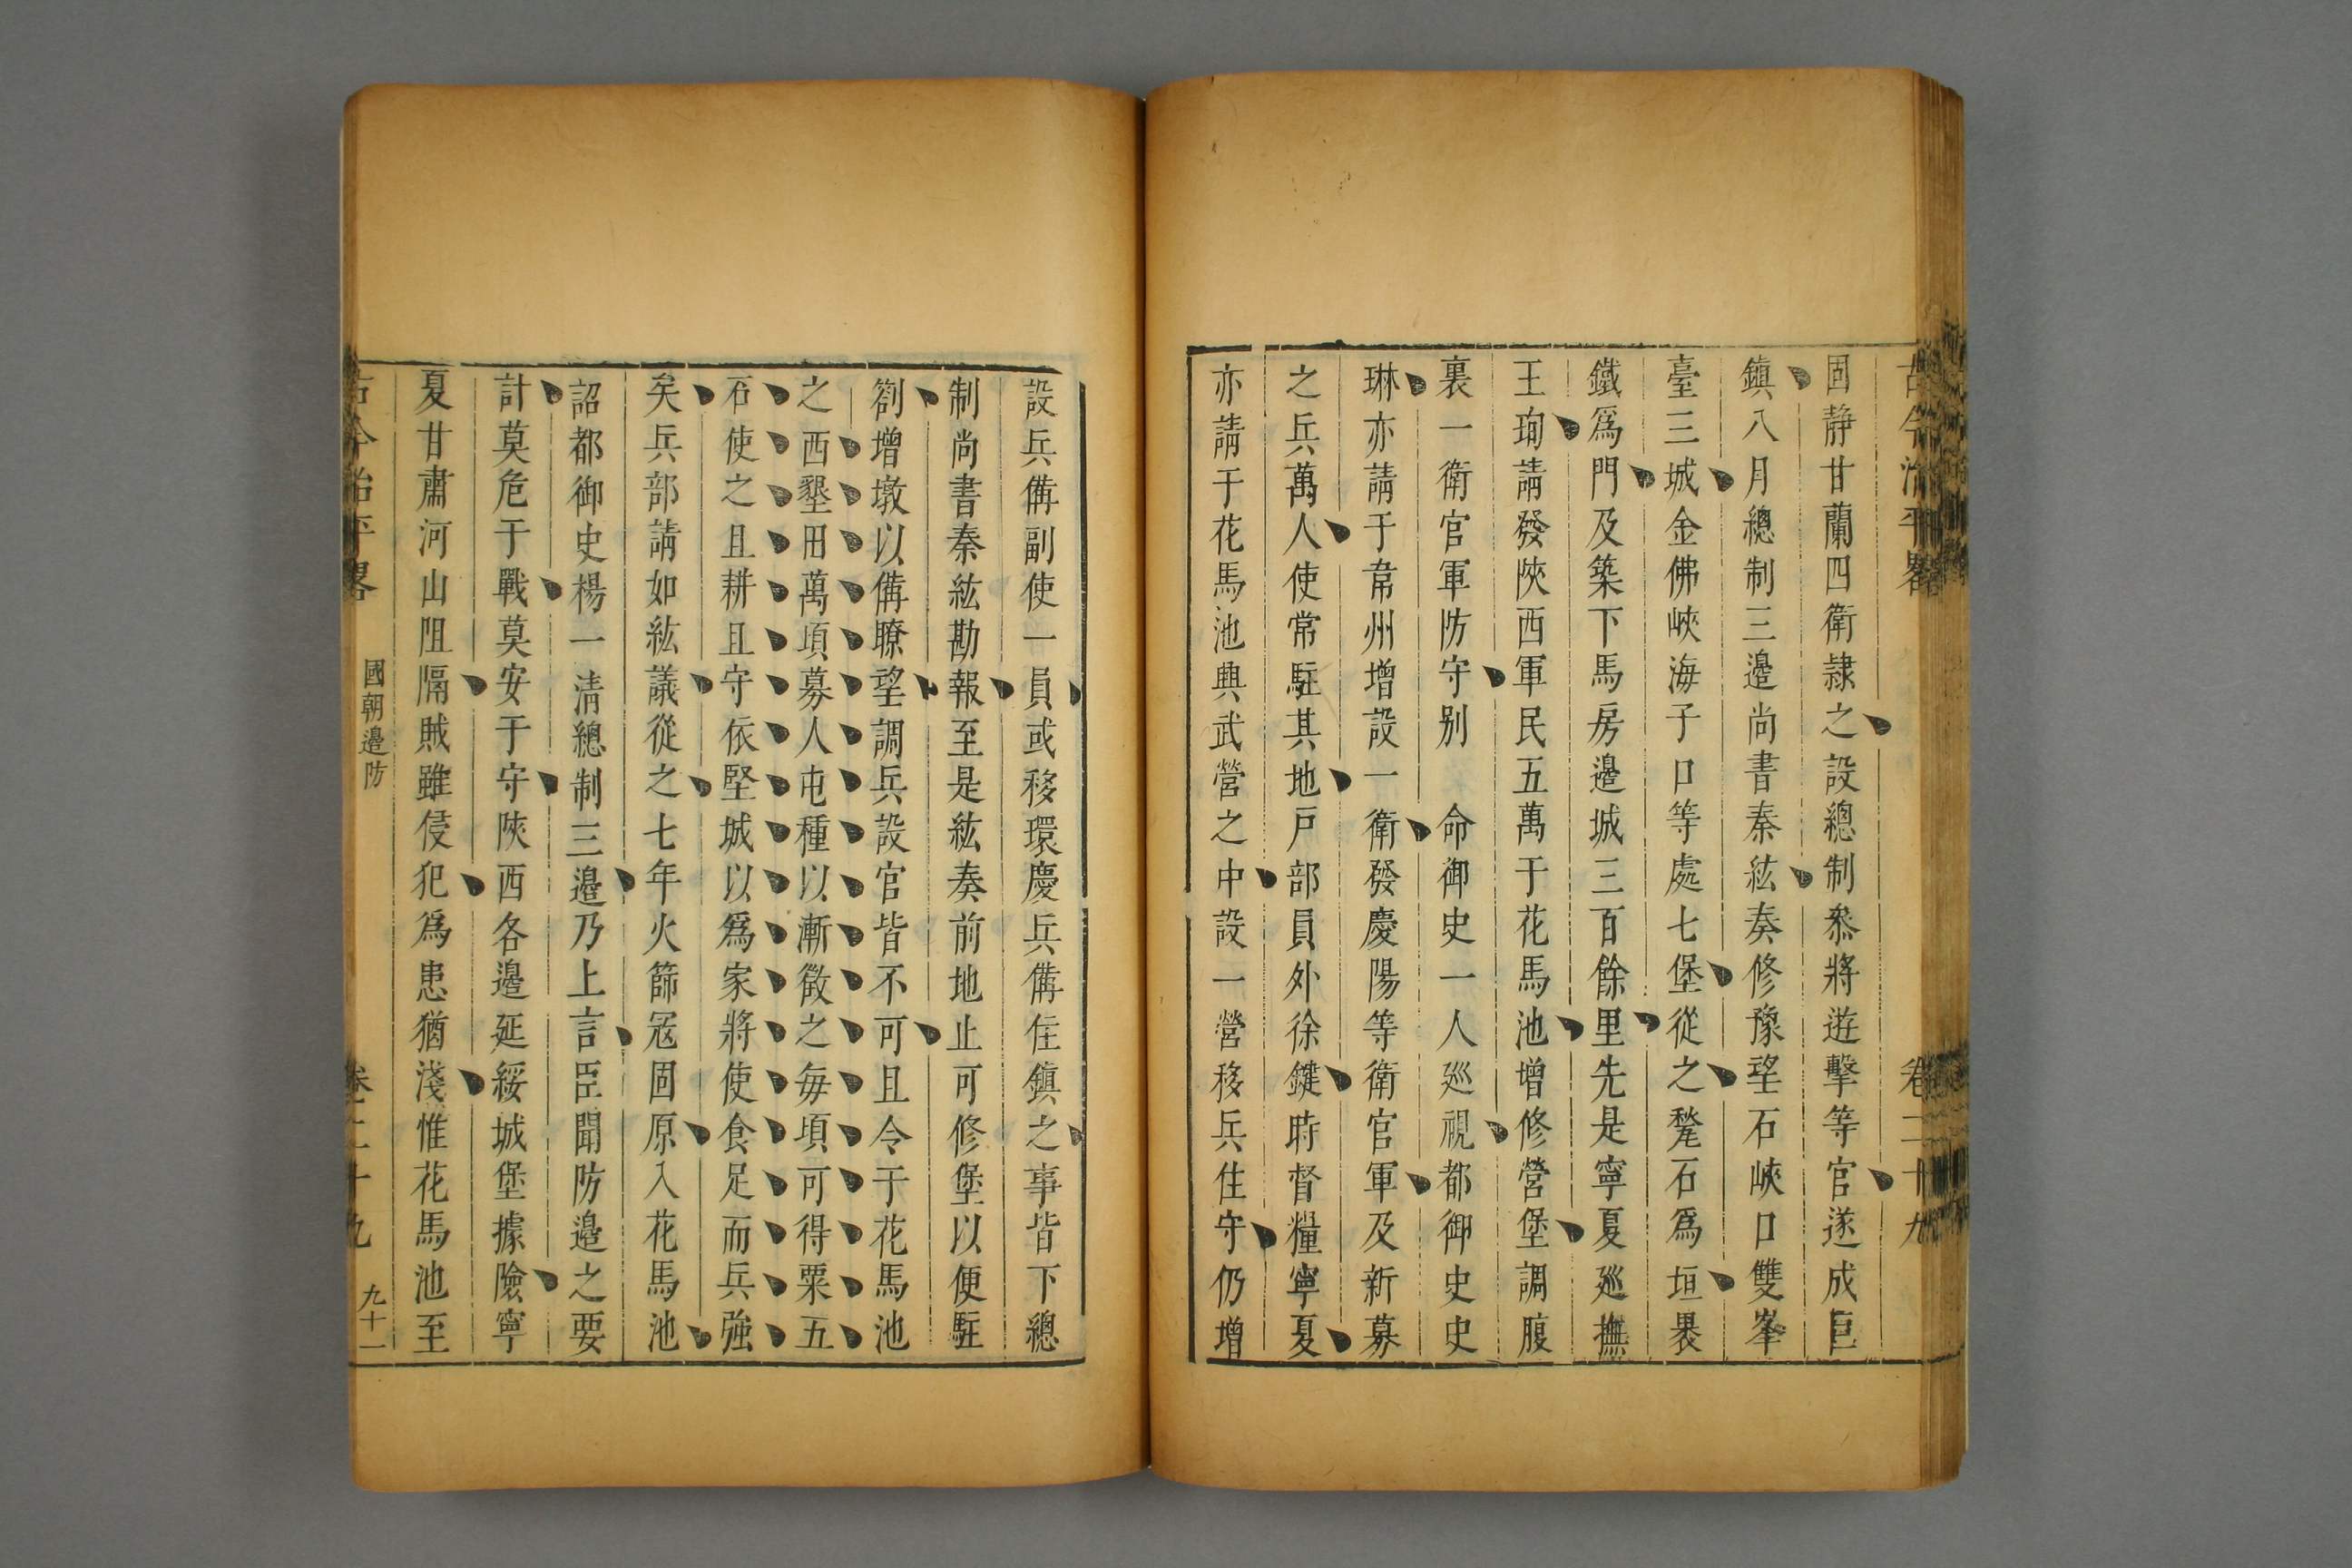 古今治平畧 卷二十九
固靜甘蘭四衛隷之設總制叅將遊擊等官遂成巨
鎮八月總制三邉尚書秦紘奏修豫望石峽口雙峯
臺三城金佛峽海子口等處七堡從之甃石爲垣褁
鐵爲門及築下馬房邉城三百餘里先是寧夏廵撫
王珣請發陜西軍民五萬于花馬池增修營堡調腹
裏一衛官軍防守别 命御史一人廵視都御史史
琳亦請于韋州增設一衛發慶陽等衛官軍及新募
之兵萬人使常駐其地戸部員外徐鍵時督糧寧夏
亦請于花馬池興武營之中設一營移兵住守仍增
設兵備副使一員或移環慶兵備住鎮之事皆下總
制尚書秦紘勘報至是紘奏前地止可修堡以便駐
劄增墩以備瞭望調兵設官皆不可且令于花馬池
之西墾田萬頃募人屯種以漸徵之每頃可得粟五
石使之且耕且守依堅城以爲家將使食足而兵强
矣兵部請如紘議從之七年火篩寇固原入花馬池
詔都御史楊一清總制三邉乃上言臣聞防邉之要
計莫危于戰莫安于守陜西各邉延綏城堡據險寧
夏甘肅河山阻隔賊雖侵犯爲患猶淺惟花馬池至
古今治平畧 國朝邉防 卷二十九 九十一